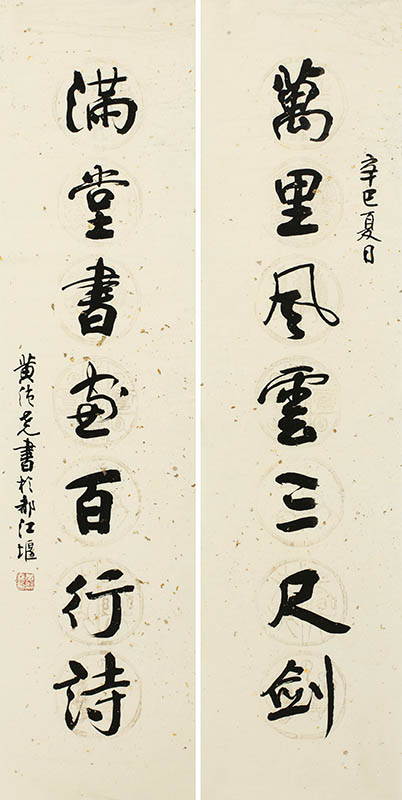 辛巳夏日
萬里風雲三尺劍
滿堂書畫百行詩
黄書於都江堰